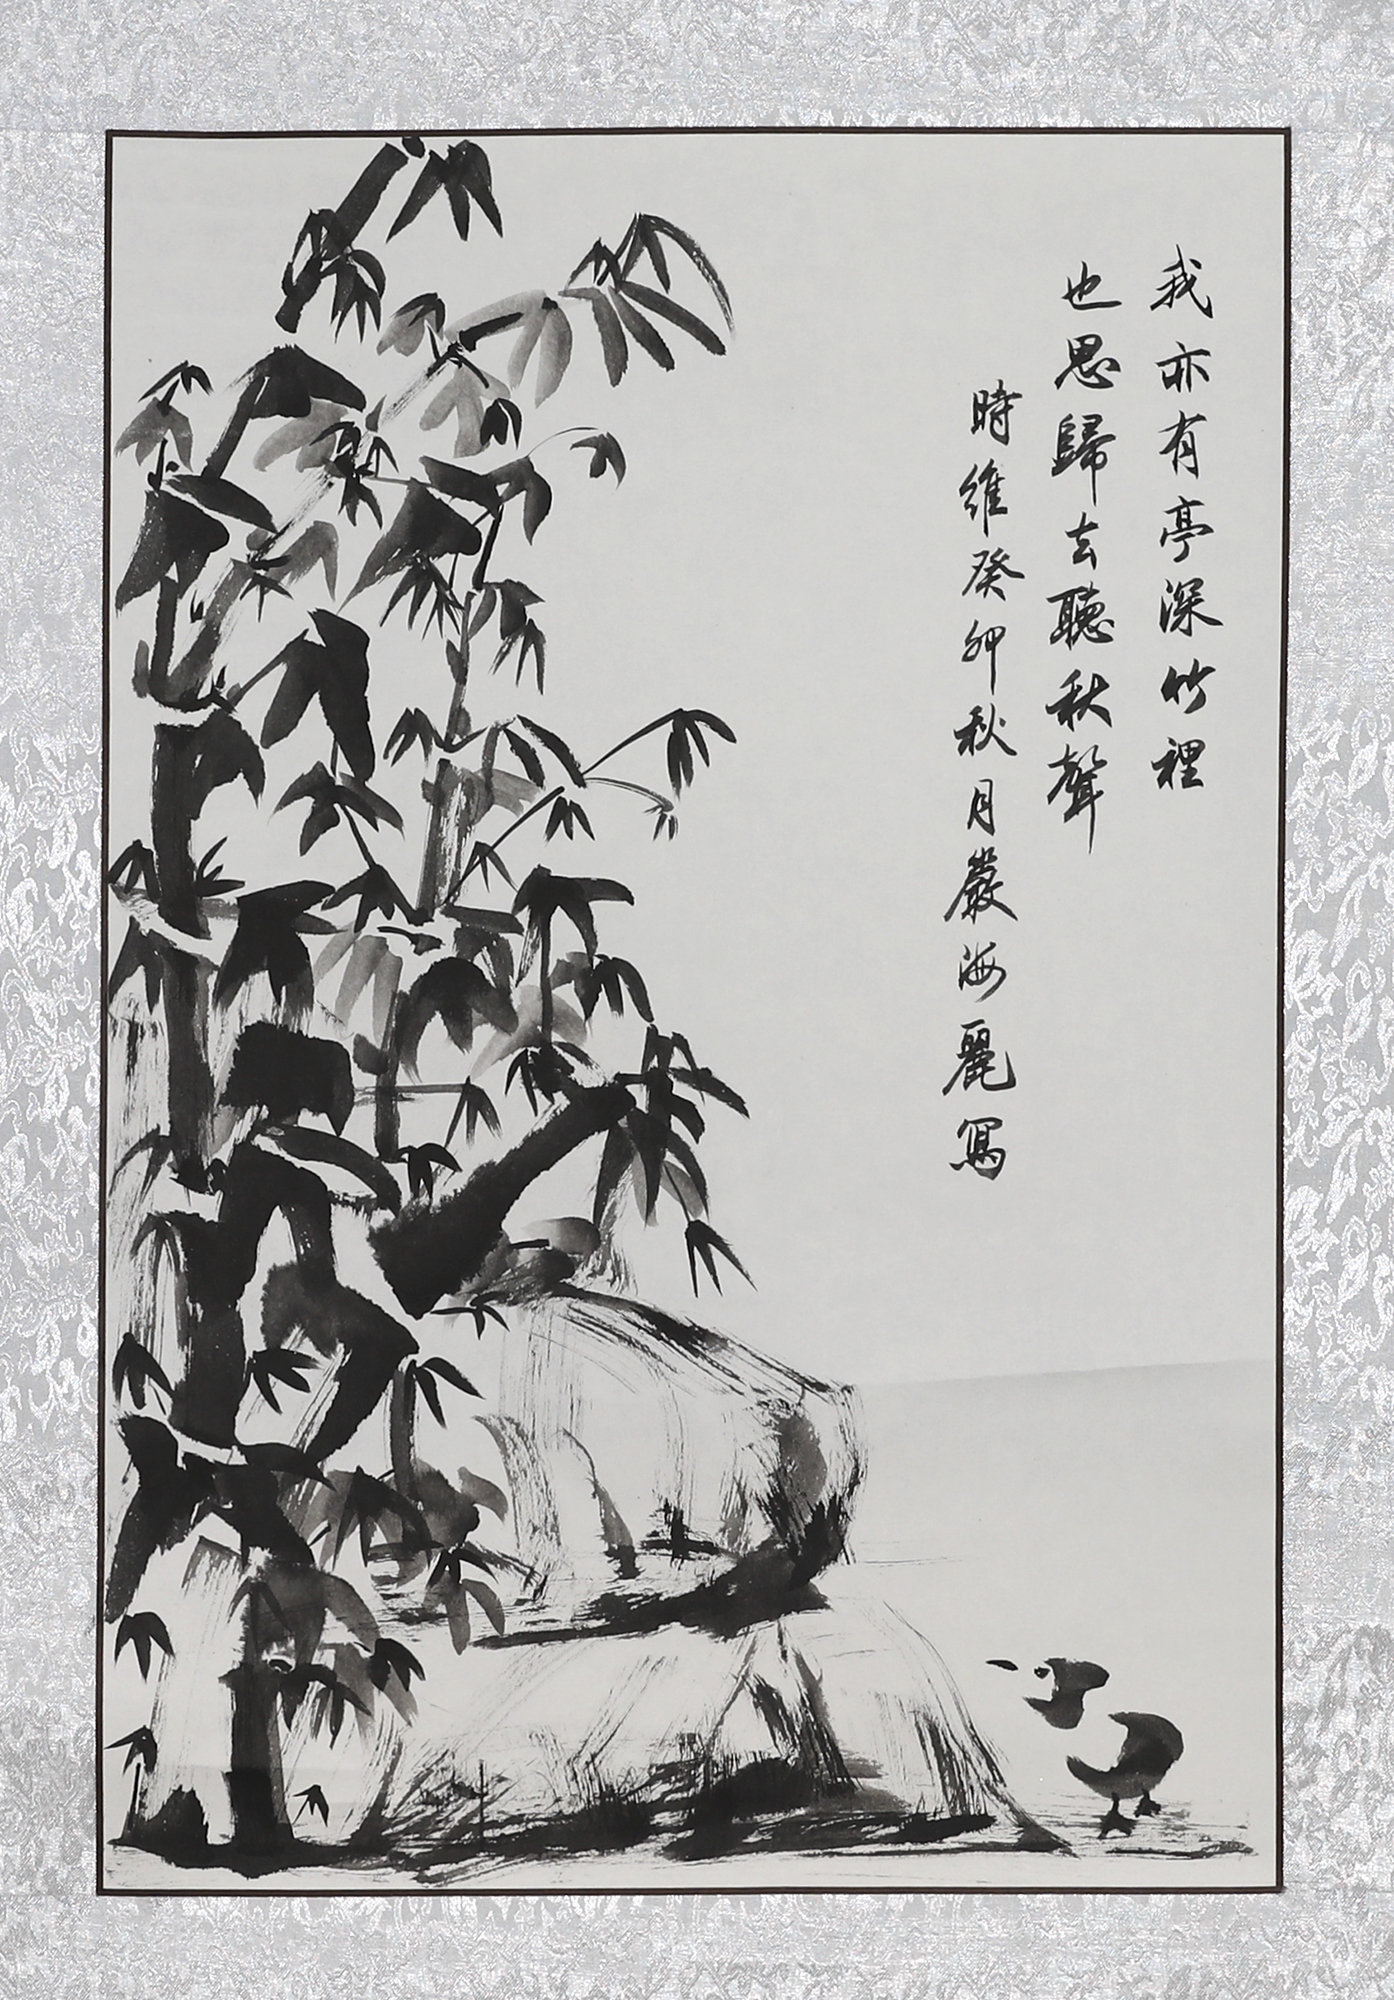 我亦有亭深竹裡
也思歸去聽秋聲
時維癸卯秋月嚴海麗寫